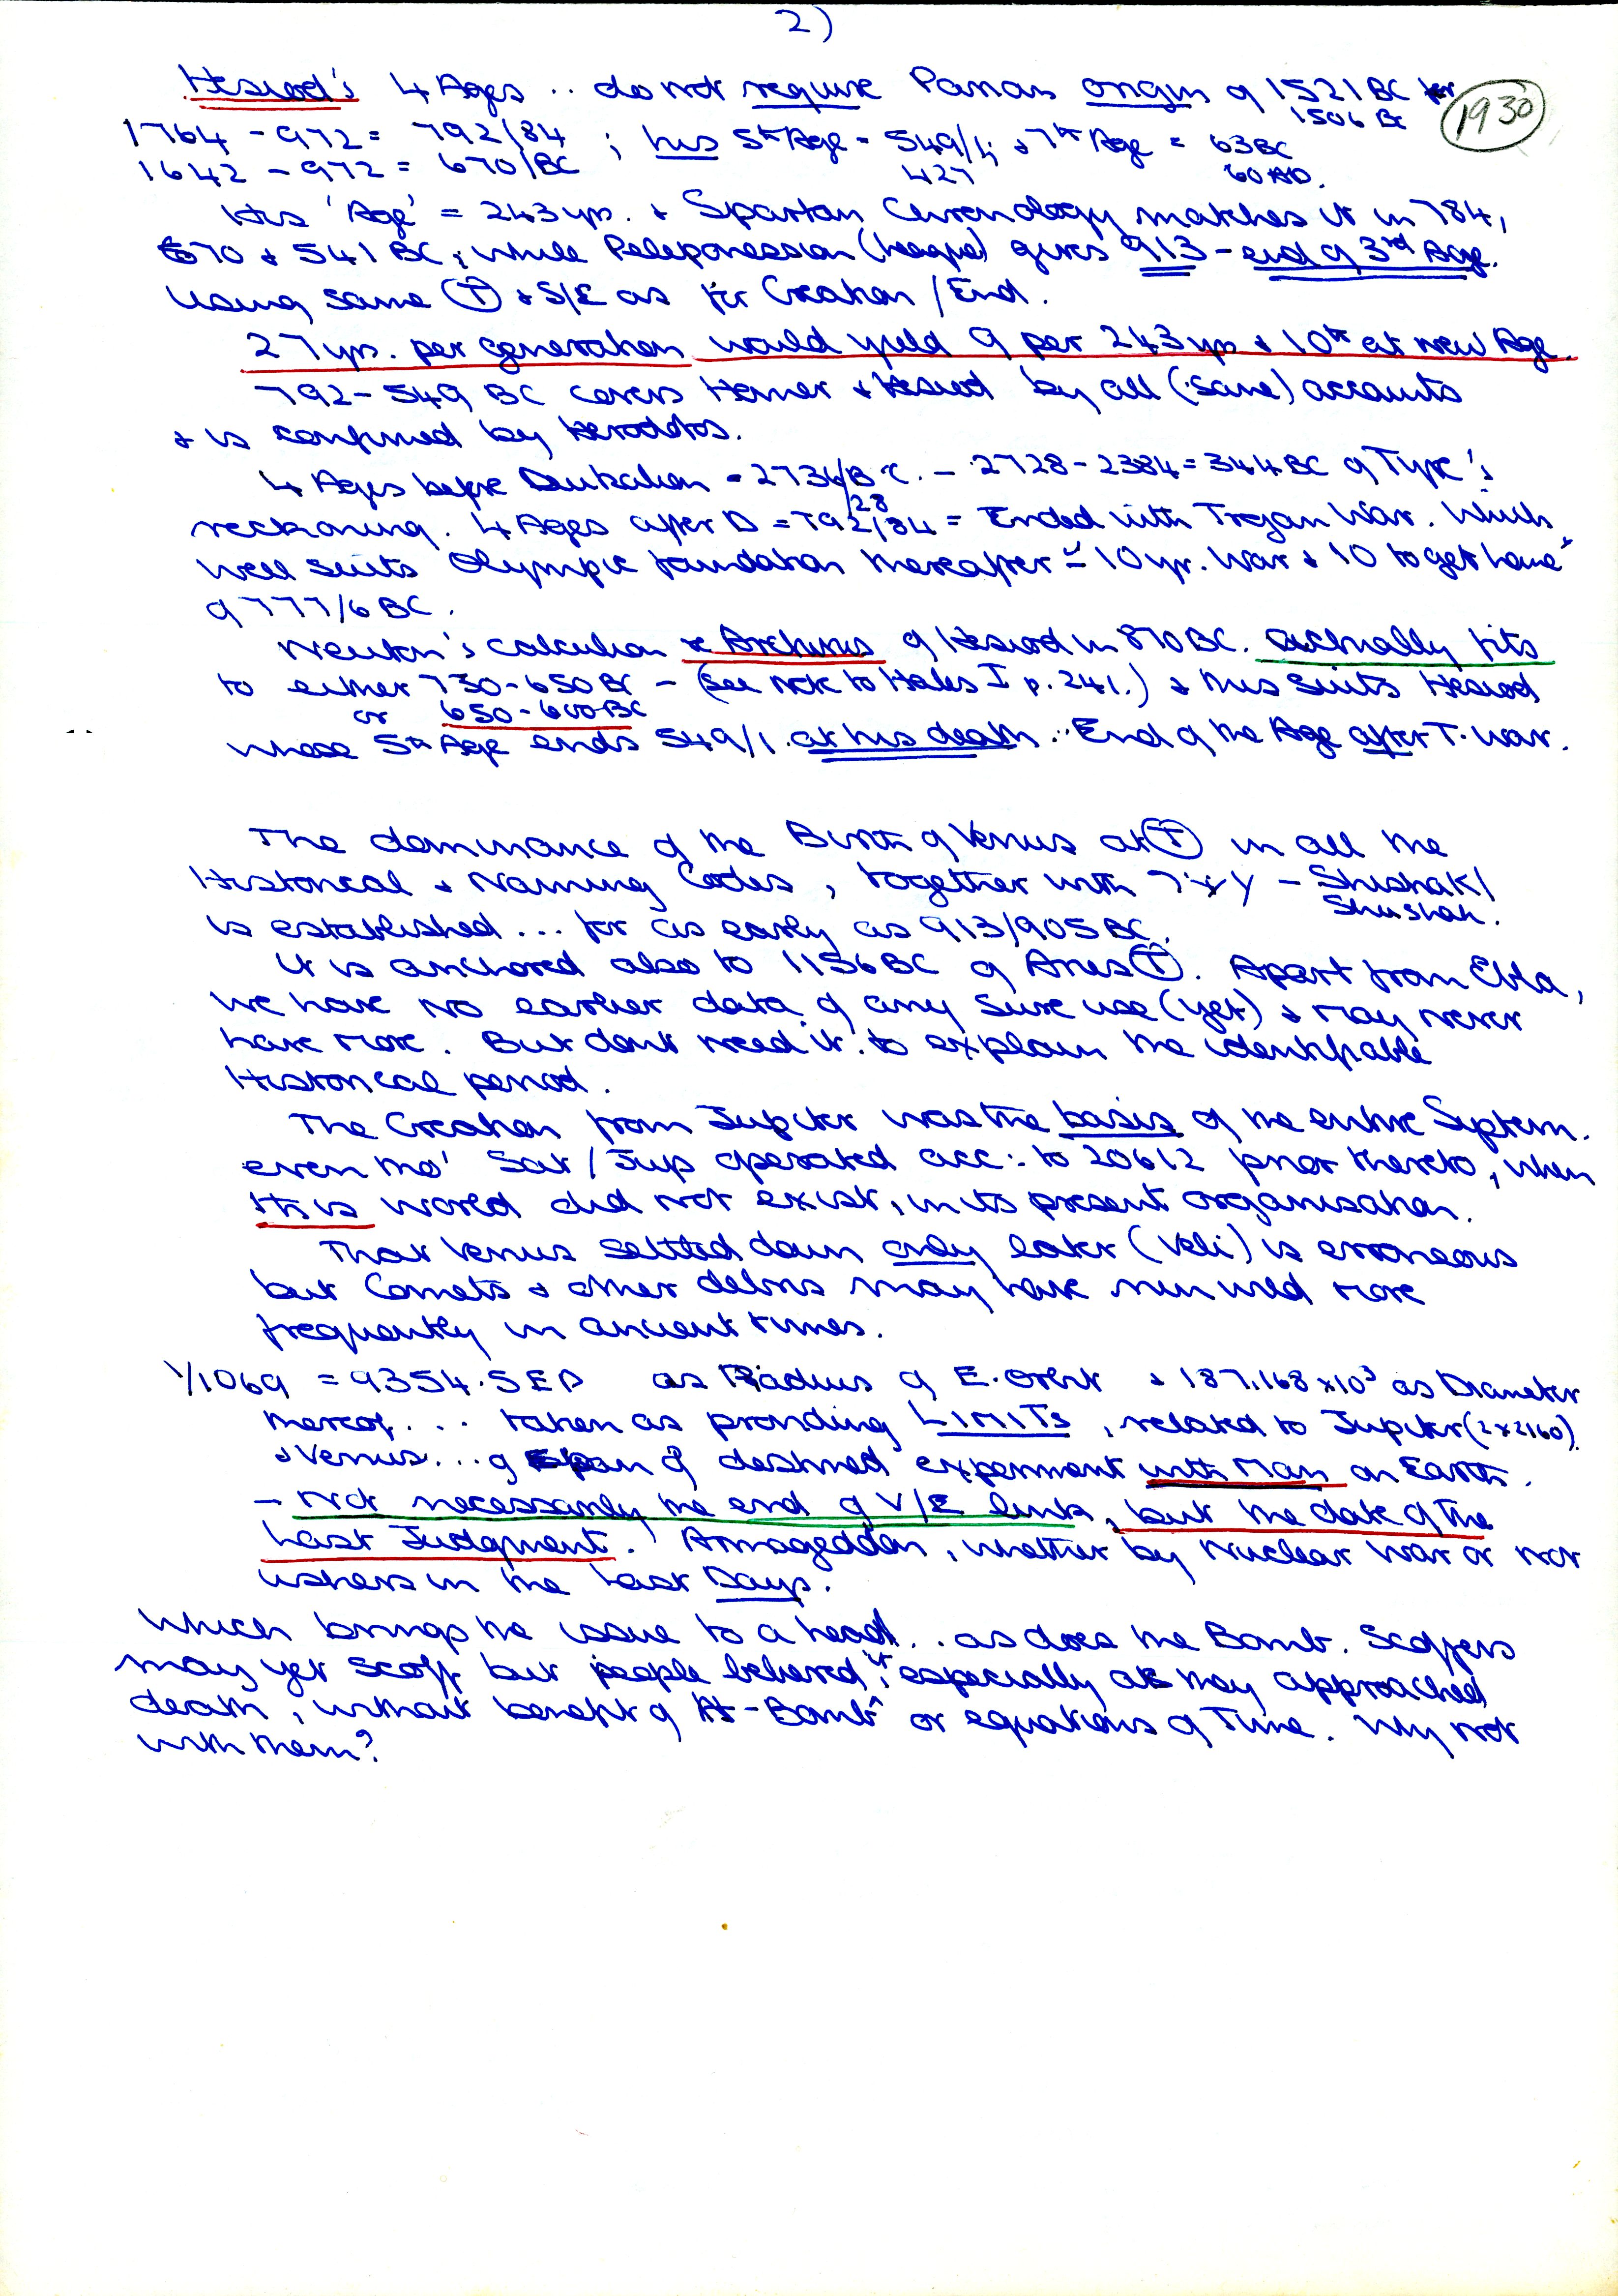 2)
Hesiod's 4 Ages .. do not require Parian origin of 1521 BC for
1506 BC
1930
1764 - 972 = 792/84 ; his 5th Age = 549/4; & 7th Age = 63 BC
1642 - 972 = 670/BC 427 60 AD.
His 'Age' = 243 yrs. & Spartan Chronology matches it in 784,
670 & 541 BC; while Peloponessian (league) gives 913 - end of 3rd Age.
Using same T & S/E as for Creation / End.
27 yrs. per generation would yield 9 per 243 yrs & 10th at new Age.
792 - 549 BC covers Homer & Hesiod by all (sane) accounts
& is confirmed by Herodotos.
4 Ages before Deukalion = 2736/BC. - 2728 - 2384 = 344 BC of Tyre's
28
reckoning. 4 Ages after D = 792/84 = Ended with Trojan War. Which
well suits Olympic foundation thereafter = 10 yr. War & 10 to get home
of 777/6 BC.
Newton's calculation Arcturus of Hesiod in 870 BC. actually fits
to either 730-650 BC - (See note to Hales I p. 241.) & this suits Hesiod
or 650-600 BC
whose 5th Age ends 549/1 at his death. End of the Age after T. War.
The dominance of the Birth of Venus at T in all the
Historical & Naming Codes, together with - Shishak/
Shushak.
is established ... for as early as 913/905 BC.
It is anchored also to 1156 BC of Aries T. Apart from Ebla,
we have no earlier data of any sure use (yet) & may never
have more. But dont need it to explain the identifiable
Historical period.
The Creation from Jupiter was the basis of the entire System.
even tho' Sat/Jup operated acc: to 20612 prior thereto, when
this world did not exist, in its present organisation.
That Venus settled down only later (Veli) is erroneous
but Comets & other debris may have run wild more
frequently in ancient times.
1/1069 = 9354.5 ED as Radius of E. Orbit & 187.168 x 10³ as Diameter
thereof... taken as providing LIMITS, related to Jupiter (2x2160)
& Venus... of span of destined experiment with Man on Earth.
- Not necessarily the end of V/E links, but the date of the
Last Judgment. Armageddon, whether by Nuclear War or not
ushers in the Last Days.
Which brings the issue to a head.. as does the Bomb. Scoffers
may yet scoff but people believed it, especially as they approached
death, without benefit of A-Bomb or equations of Time. Why not
with them?